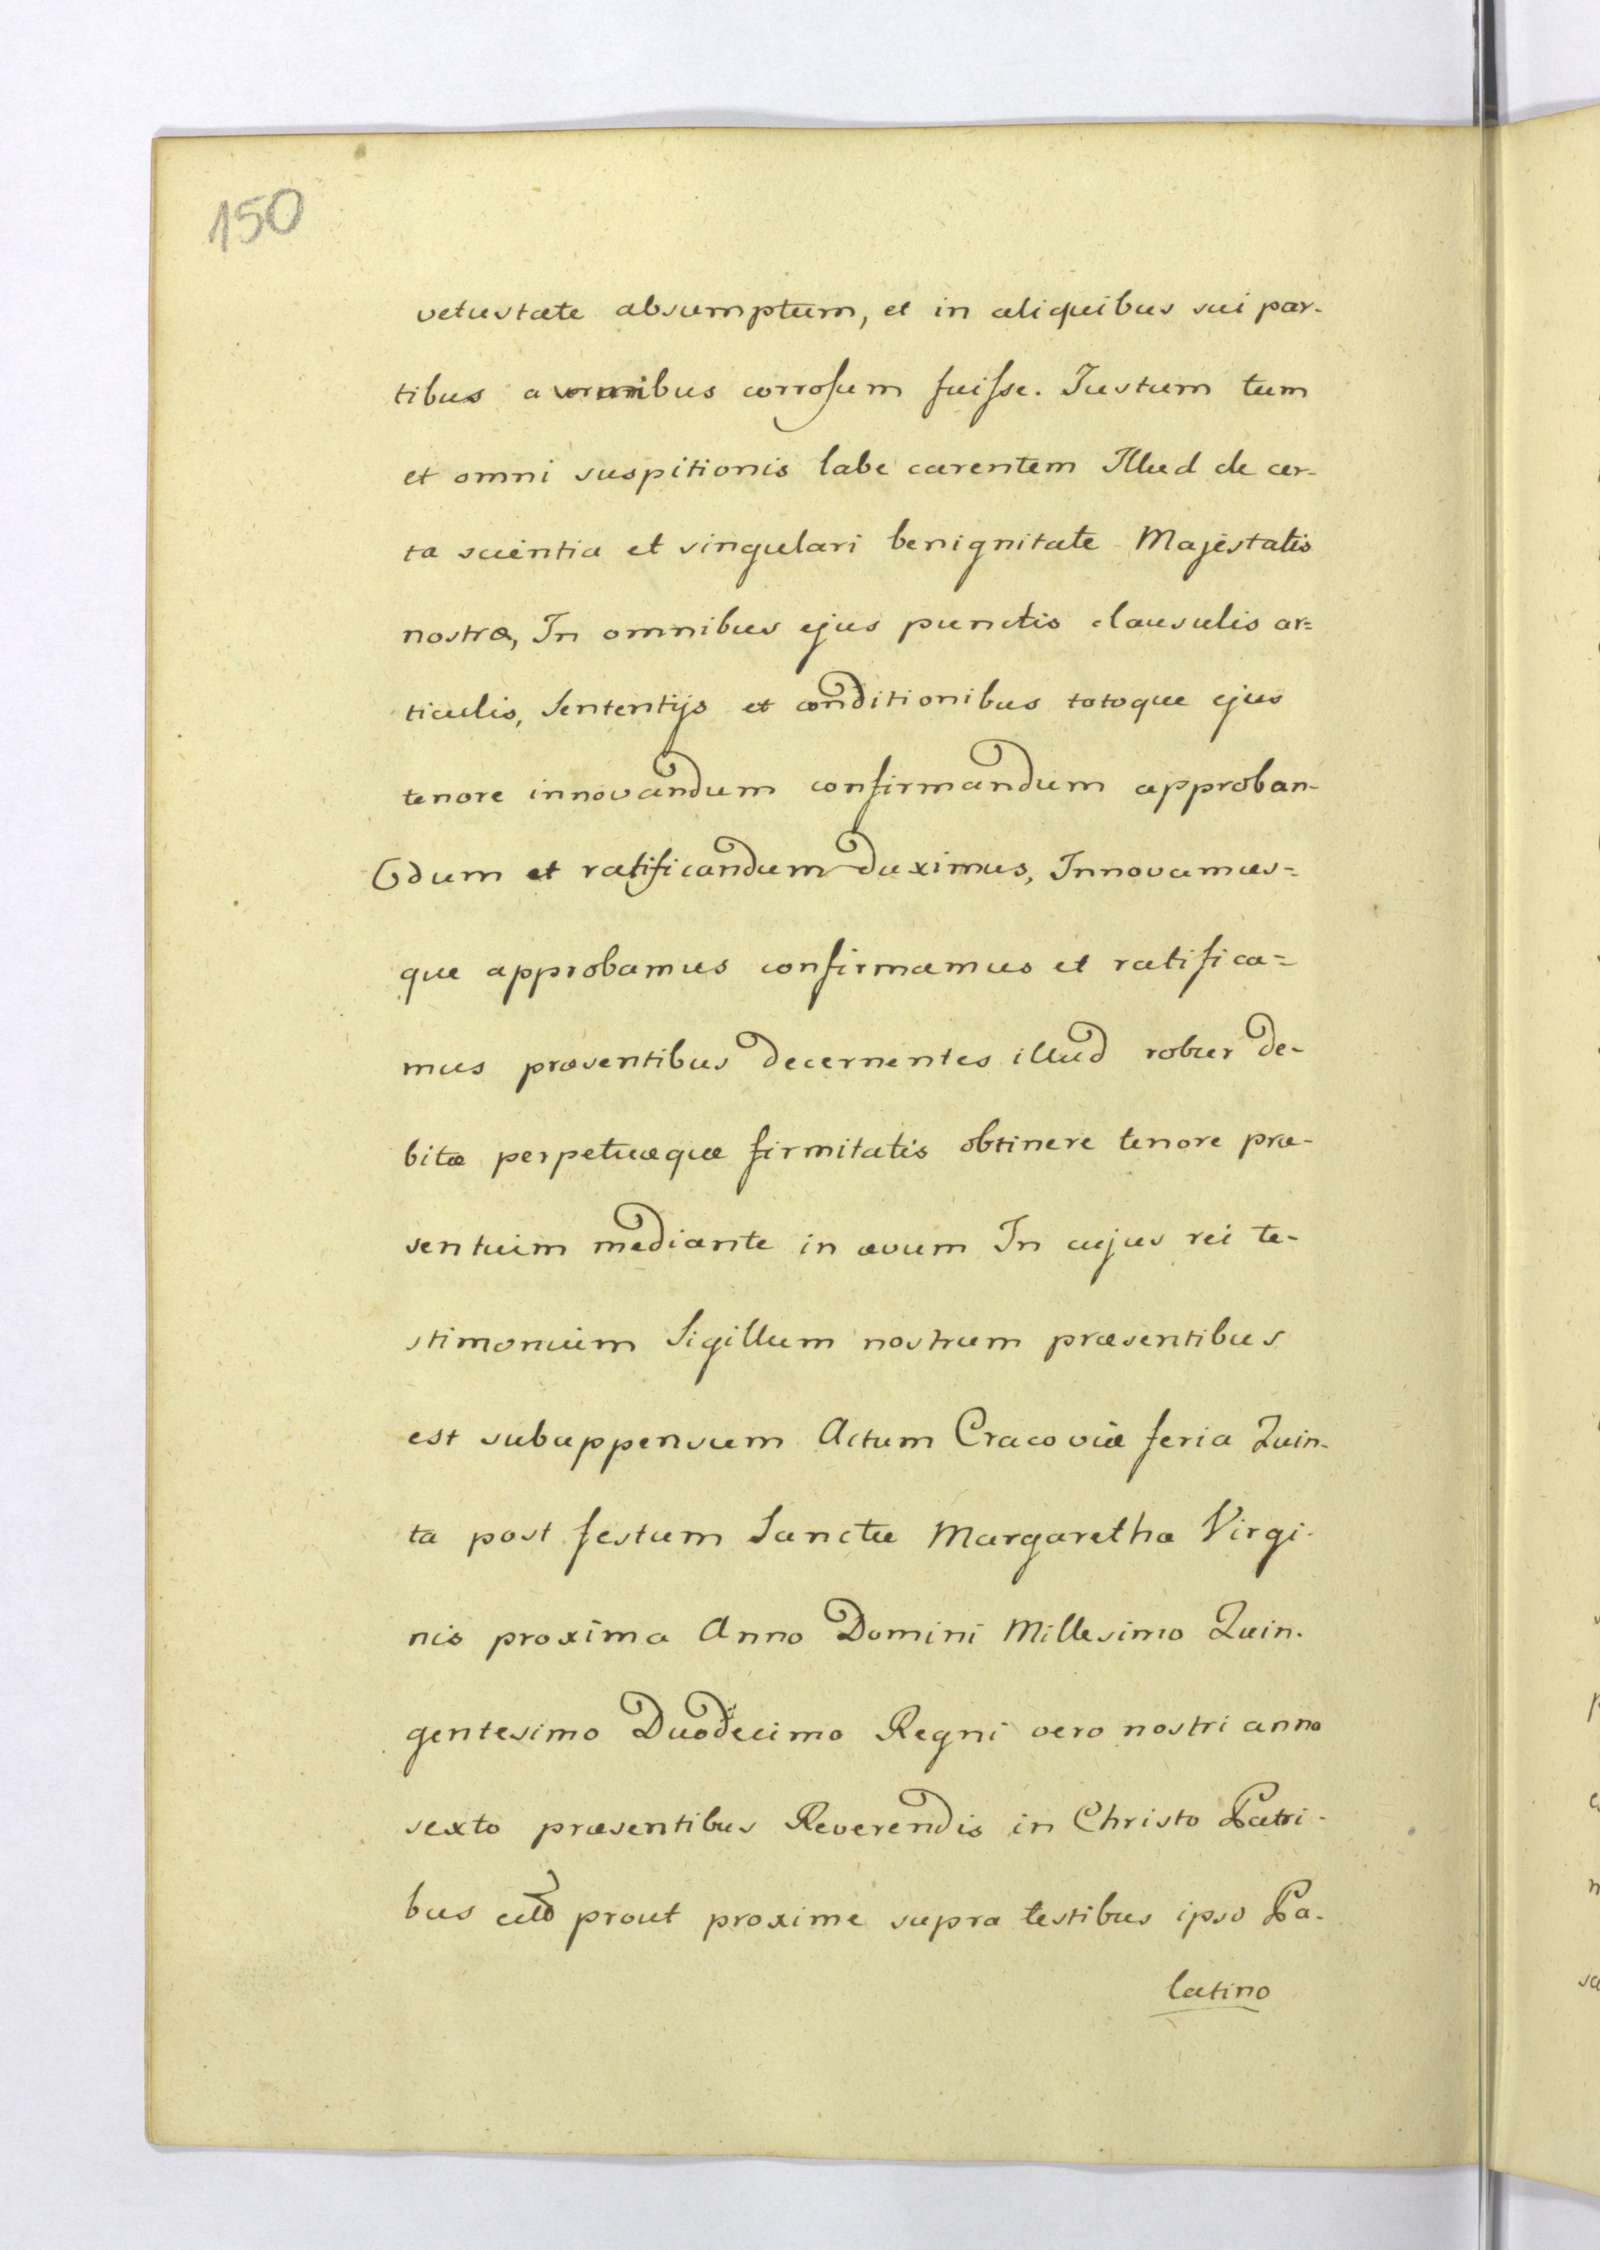 150
vetustate absumptum, et in aliquibus sui par-
tibus a vermibus corrosum fuisse. Justum tum
et omni suspitionis labe carentem Illud de cer-
ta scientia et singulari benignitate Majestatis
nostræ, In omnibus ejus punctis clausulis ar=
ticulis, Sententijs et conditionibus totoque ejus
tenore innovandum confirmandum approban-
dum et ratificandum duximus, Innovamus=
que approbamus confirmamus et ratifica=
mus præsentibus decernentes illud robur de-
bitæ perpetuæquæ firmitatis obtinere tenore præ-
sentium mediante in ævum In cujus rei te-
stimonium Sigillum nostrum præsentibus
est subappensum Actum Cracoviæ feria Quin-
ta post festum Sanctæ Margarethæ Virgi-
nis proxima Anno Domini Millesimo Quin-
gentesimo Duodecimo Regni vero nostri anno
sexto præsentibus Reverendis in Christo Patri-
bus prout proxime supra testibus ipso Pa-
latino